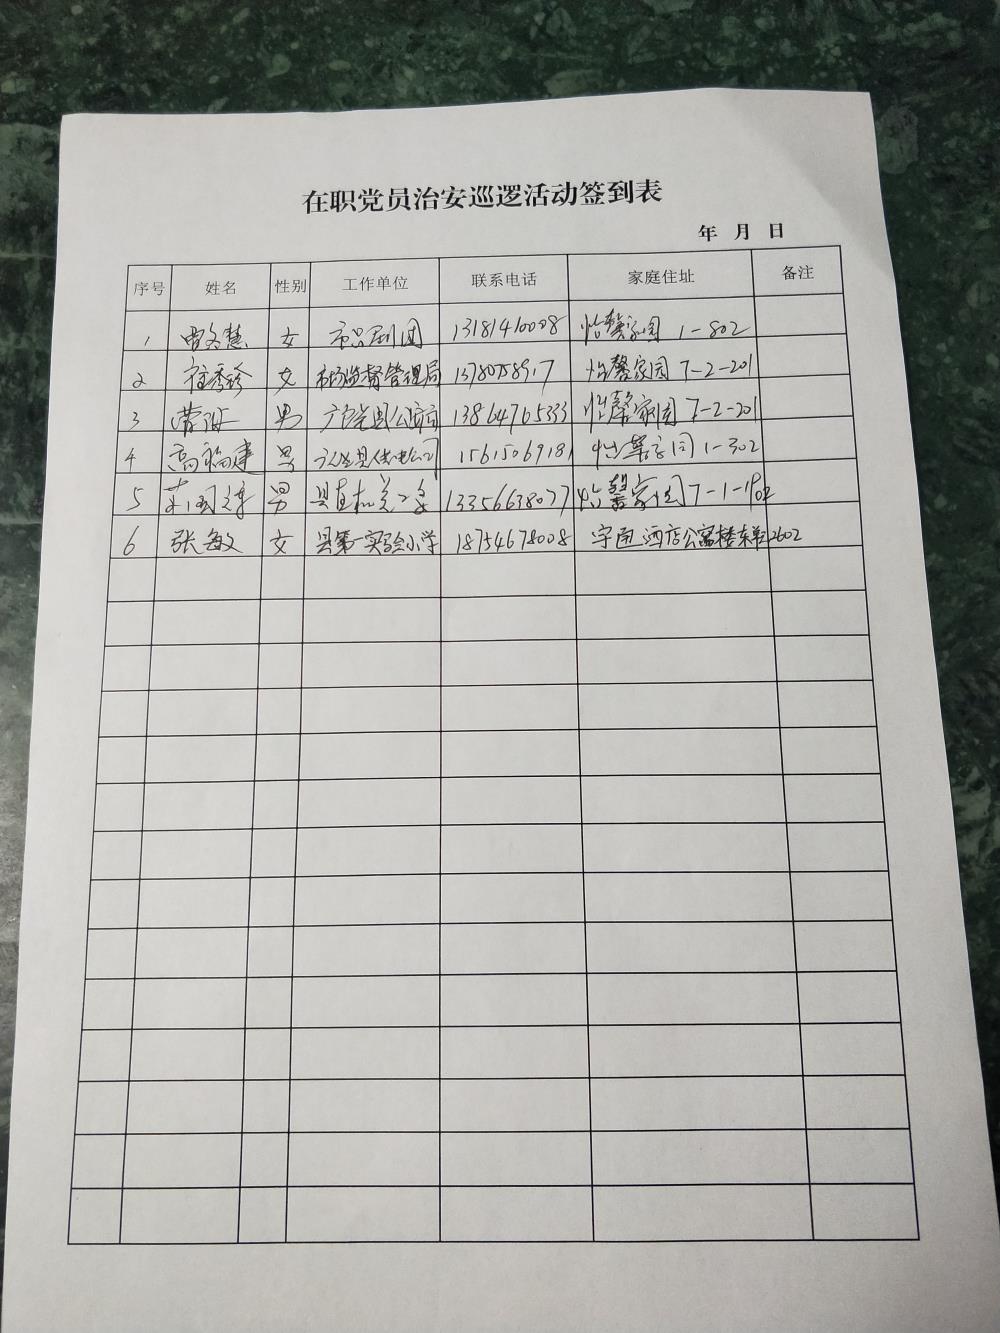 在职党员治安巡逻活动签到表
年 月 日
序号 姓名 性别 工作单位 联系电话 家庭住址 备注
1 曹文慧 女 市吕剧团 13181410008 怡馨家园 1-802
2 秀珍 女 市场监督管理局 怡馨家园 7-2-201
3 曹 男 广饶县公安局 13864765333 怡馨家园 7-2-201
4 高福建 男 广饶县供电公司 15615069181 怡馨家园 1-302
5 男 县直机关工委 13356638077 怡馨家园 7-1-1902
6 张敏 女 县第一实验小学 18754678008 酒店公寓楼东单2602